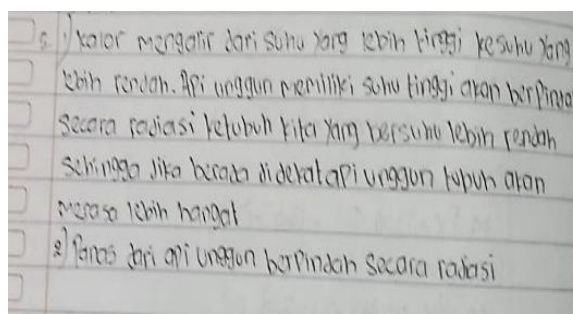 5. 1) kalor mengalir dari suhu yang lebih tinggi kesuhu yang
lebih rendah. Api unggun memiliki suhu tinggi akan berpinda
secara radiasi ketubuh kita yang bersuhu lebih rendah
sehingga jika berada didekat api unggun tubuh akan
merasa lebih hangat
2) Panas dari api unggun berpindah secara radiasi